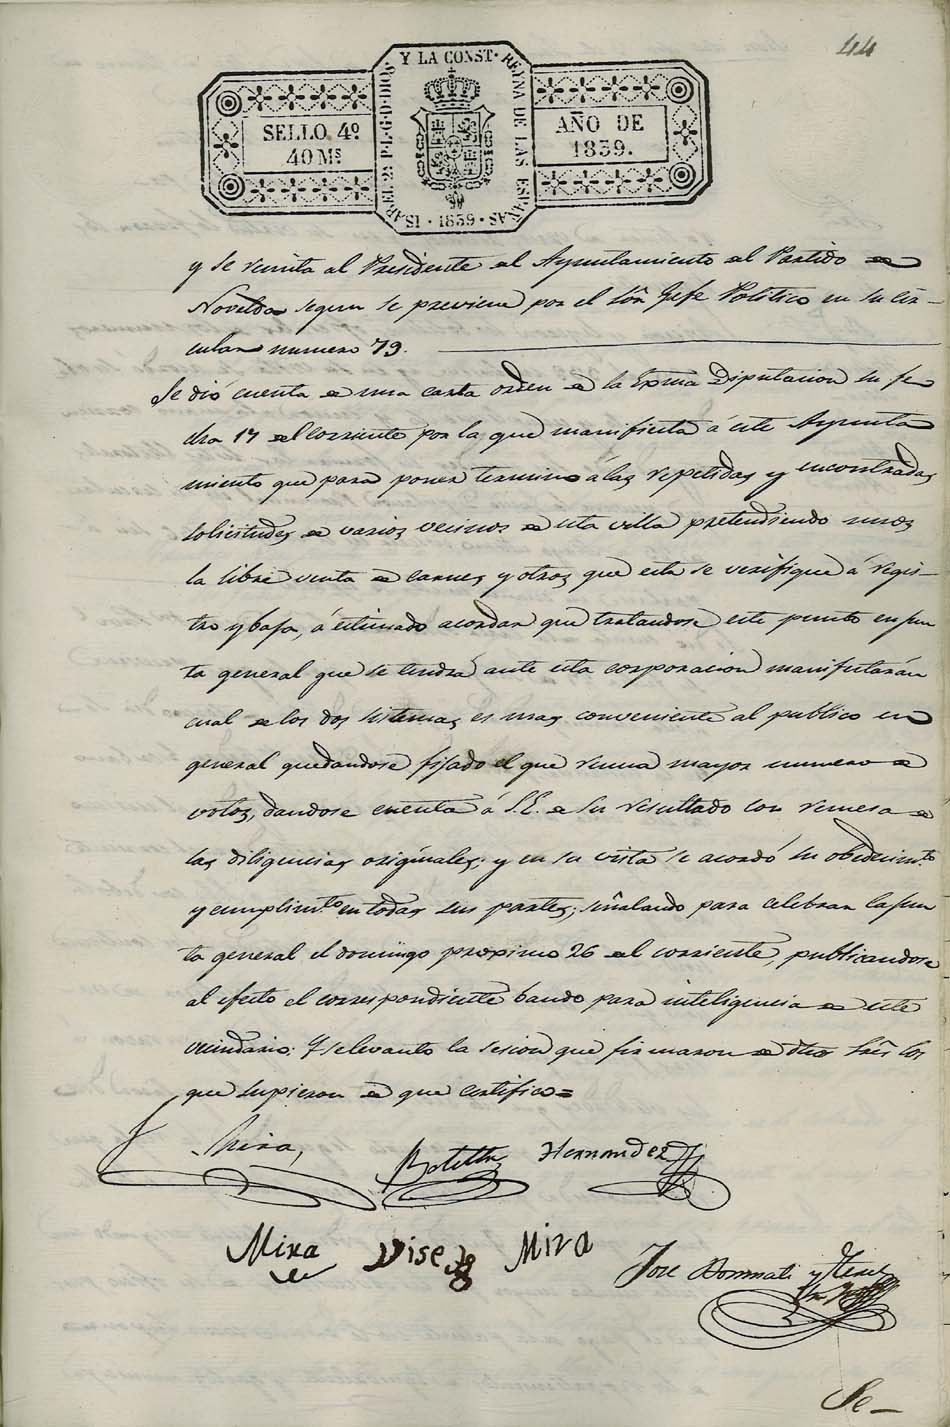 44
Y LA CONST. REYNA DE LAS ESPAÑAS
ISABEL 2ª P.L.G.D. DIOS
SELLO 4º
40 Ms
AÑO DE
1839.
1839
y se remita al Presidente del Ayuntamiento del Partido de
Novelda segun se previene por el Sôr Gefe Politico en su cir-
cular numero 79.
Se dió cuenta de una carta orden de la Exma Diputacion su fe
cha 17 del corriente por la que manifiesta á este Ayunta
miento que para poner termino á las repetidas y encontradas
solicitudes de varios vecinos de esta villa pretendiendo unos
la libre venta de carnes y otros que esta se verifique á regis-
tro y baja, á estimado acordar que tratandose este punto en jun
ta general que se tendrá ante esta corporacion manifestarán
cual de los dos sistemas es mas conveniente al publico en
general quedandose fijado el que reuna mayor numero de
votos, dandose cuenta á S.E. de su resultado con remesa de
las diligencias originales; y en su vista se acordó su obedecim.to
y cumplim.to en todas sus partes; señalando para celebrar la jun
ta general el domingo proximo 26 del corriente, publicandose
al efecto el correspondiente bando para inteligencia de este
vecindario. Y se levanto la sesion que firmaron de dhos Sres los
que supieron de que certifico=
Mira,
Botella
Hernandez
Mira
Mira
Jose
y
Se-